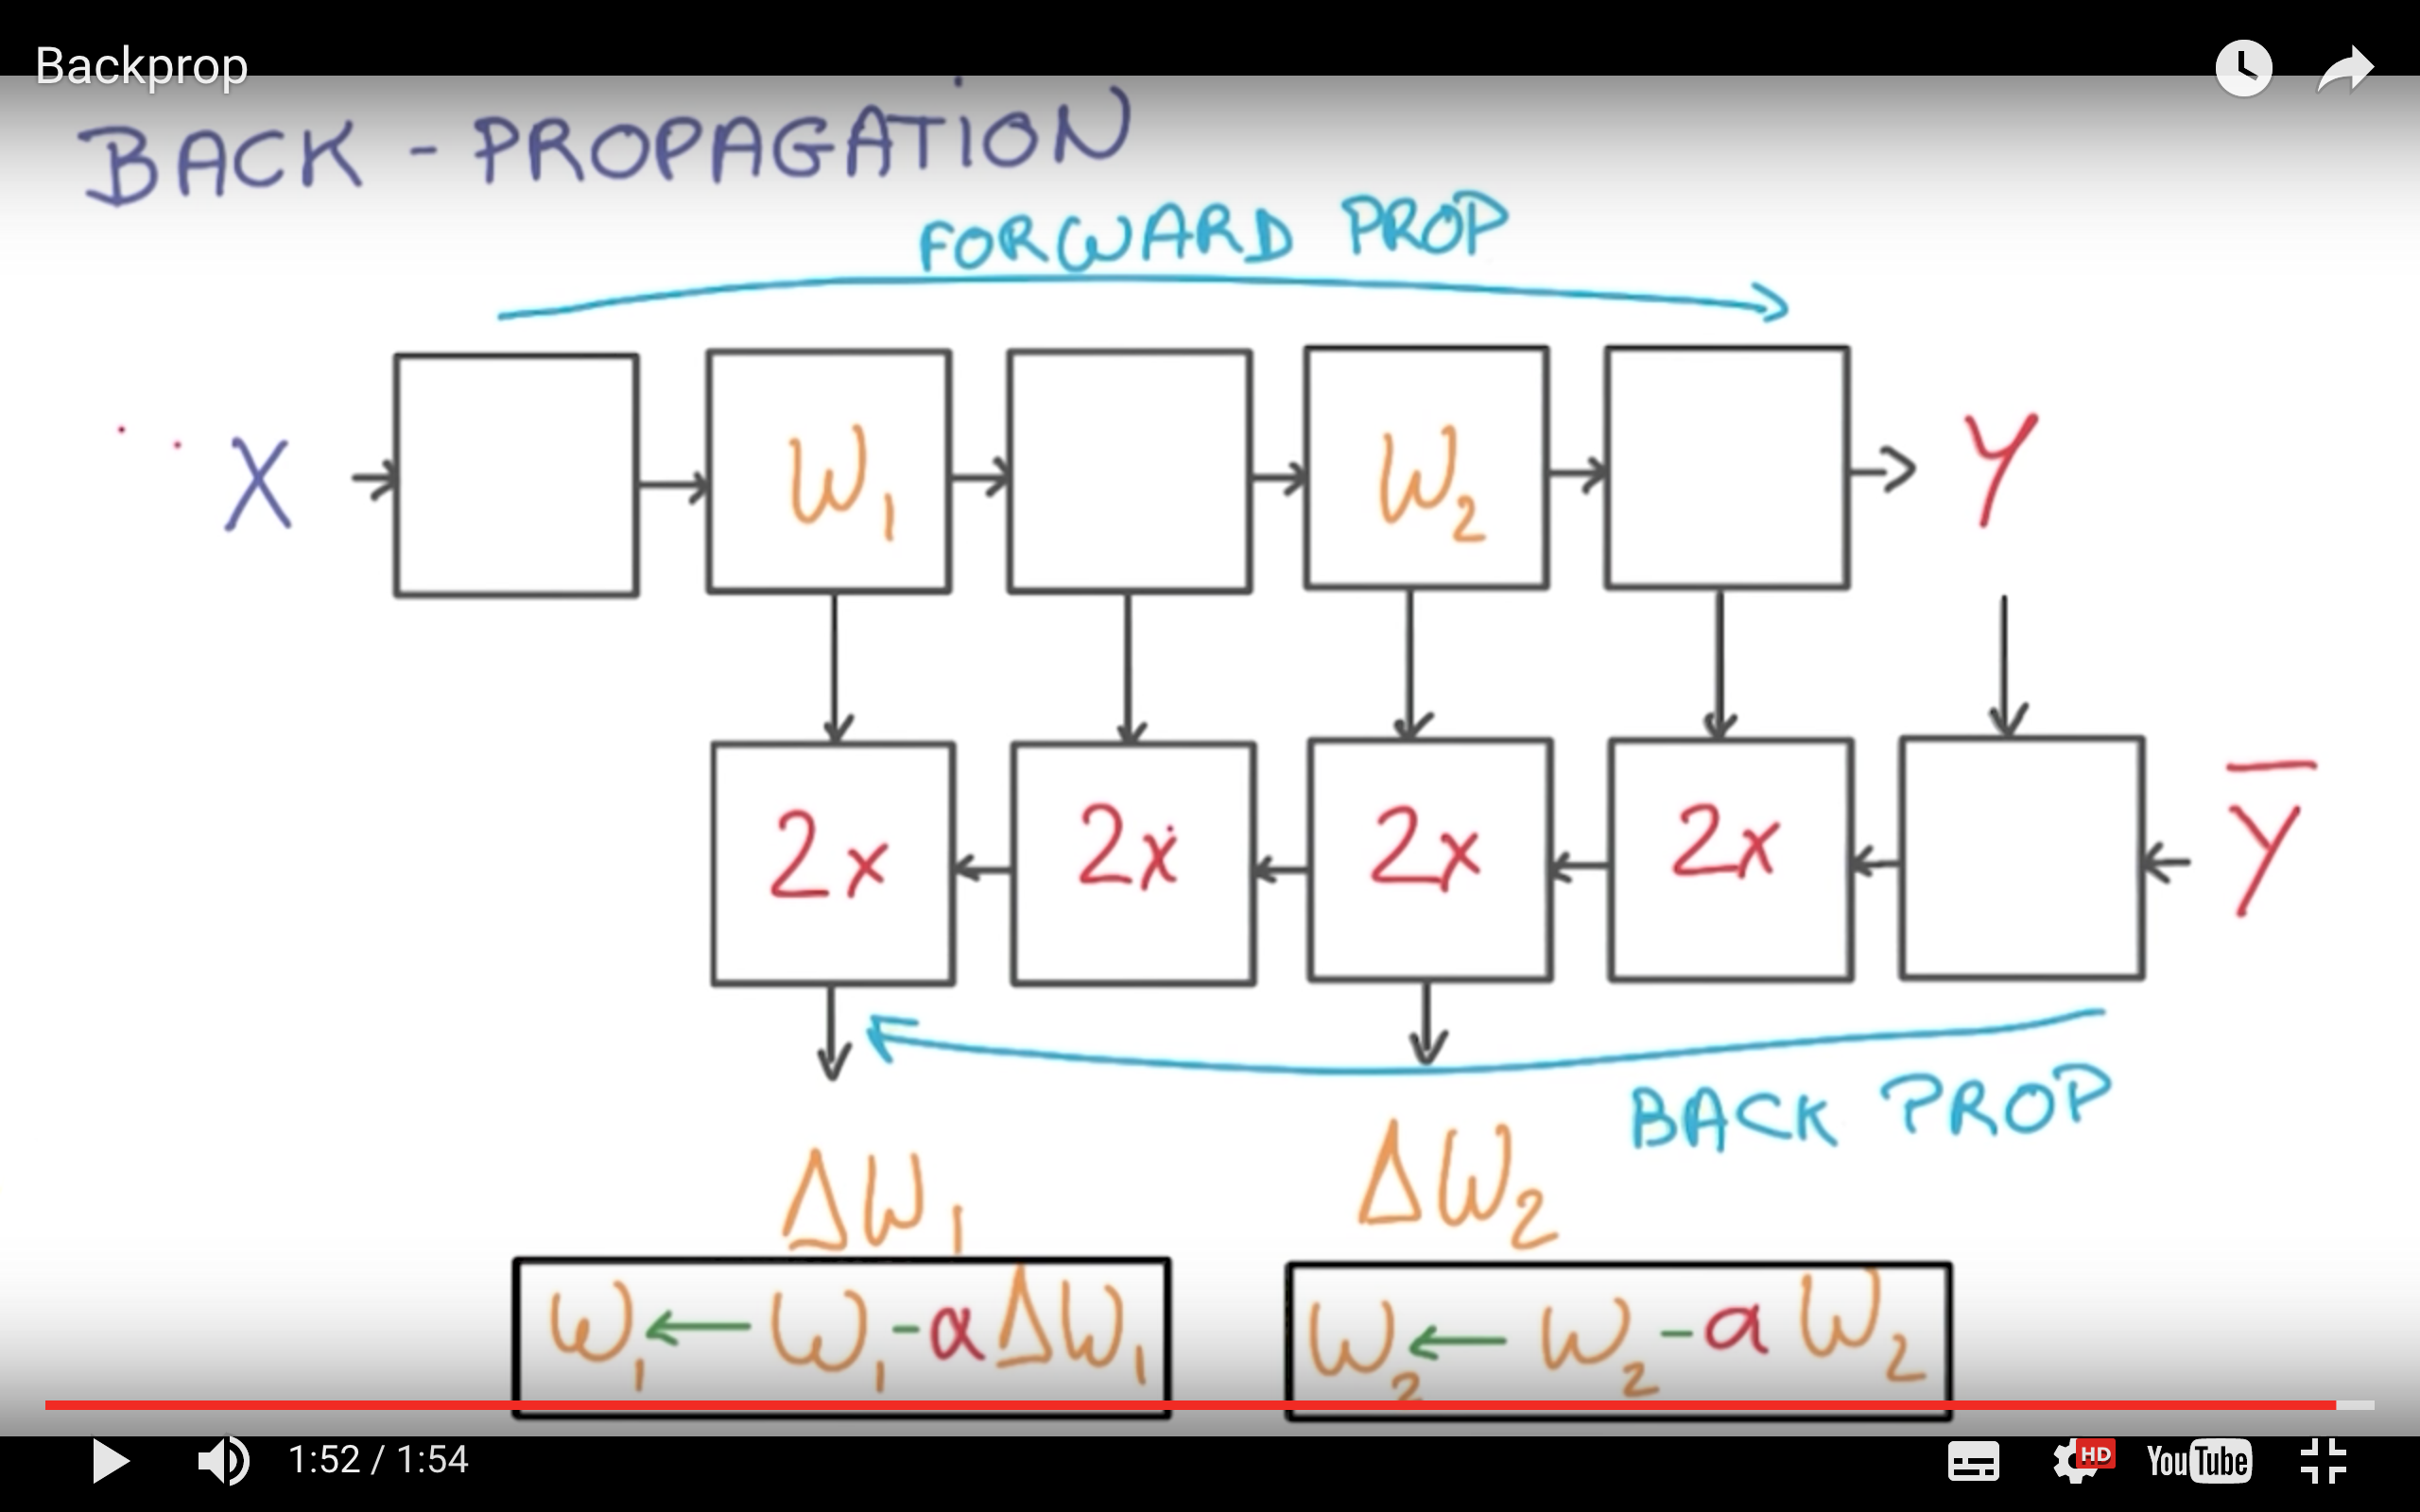 Backprop
BACK - PROPAGATION
FORWARD PROP
X W1 W2 Y
2x 2x 2x 2x Y̅
BACK PROP
ΔW1 ΔW2
W1 ← W1 - α ΔW1 W2 ← W2 - α W2
1:52 / 1:54 HD YouTube